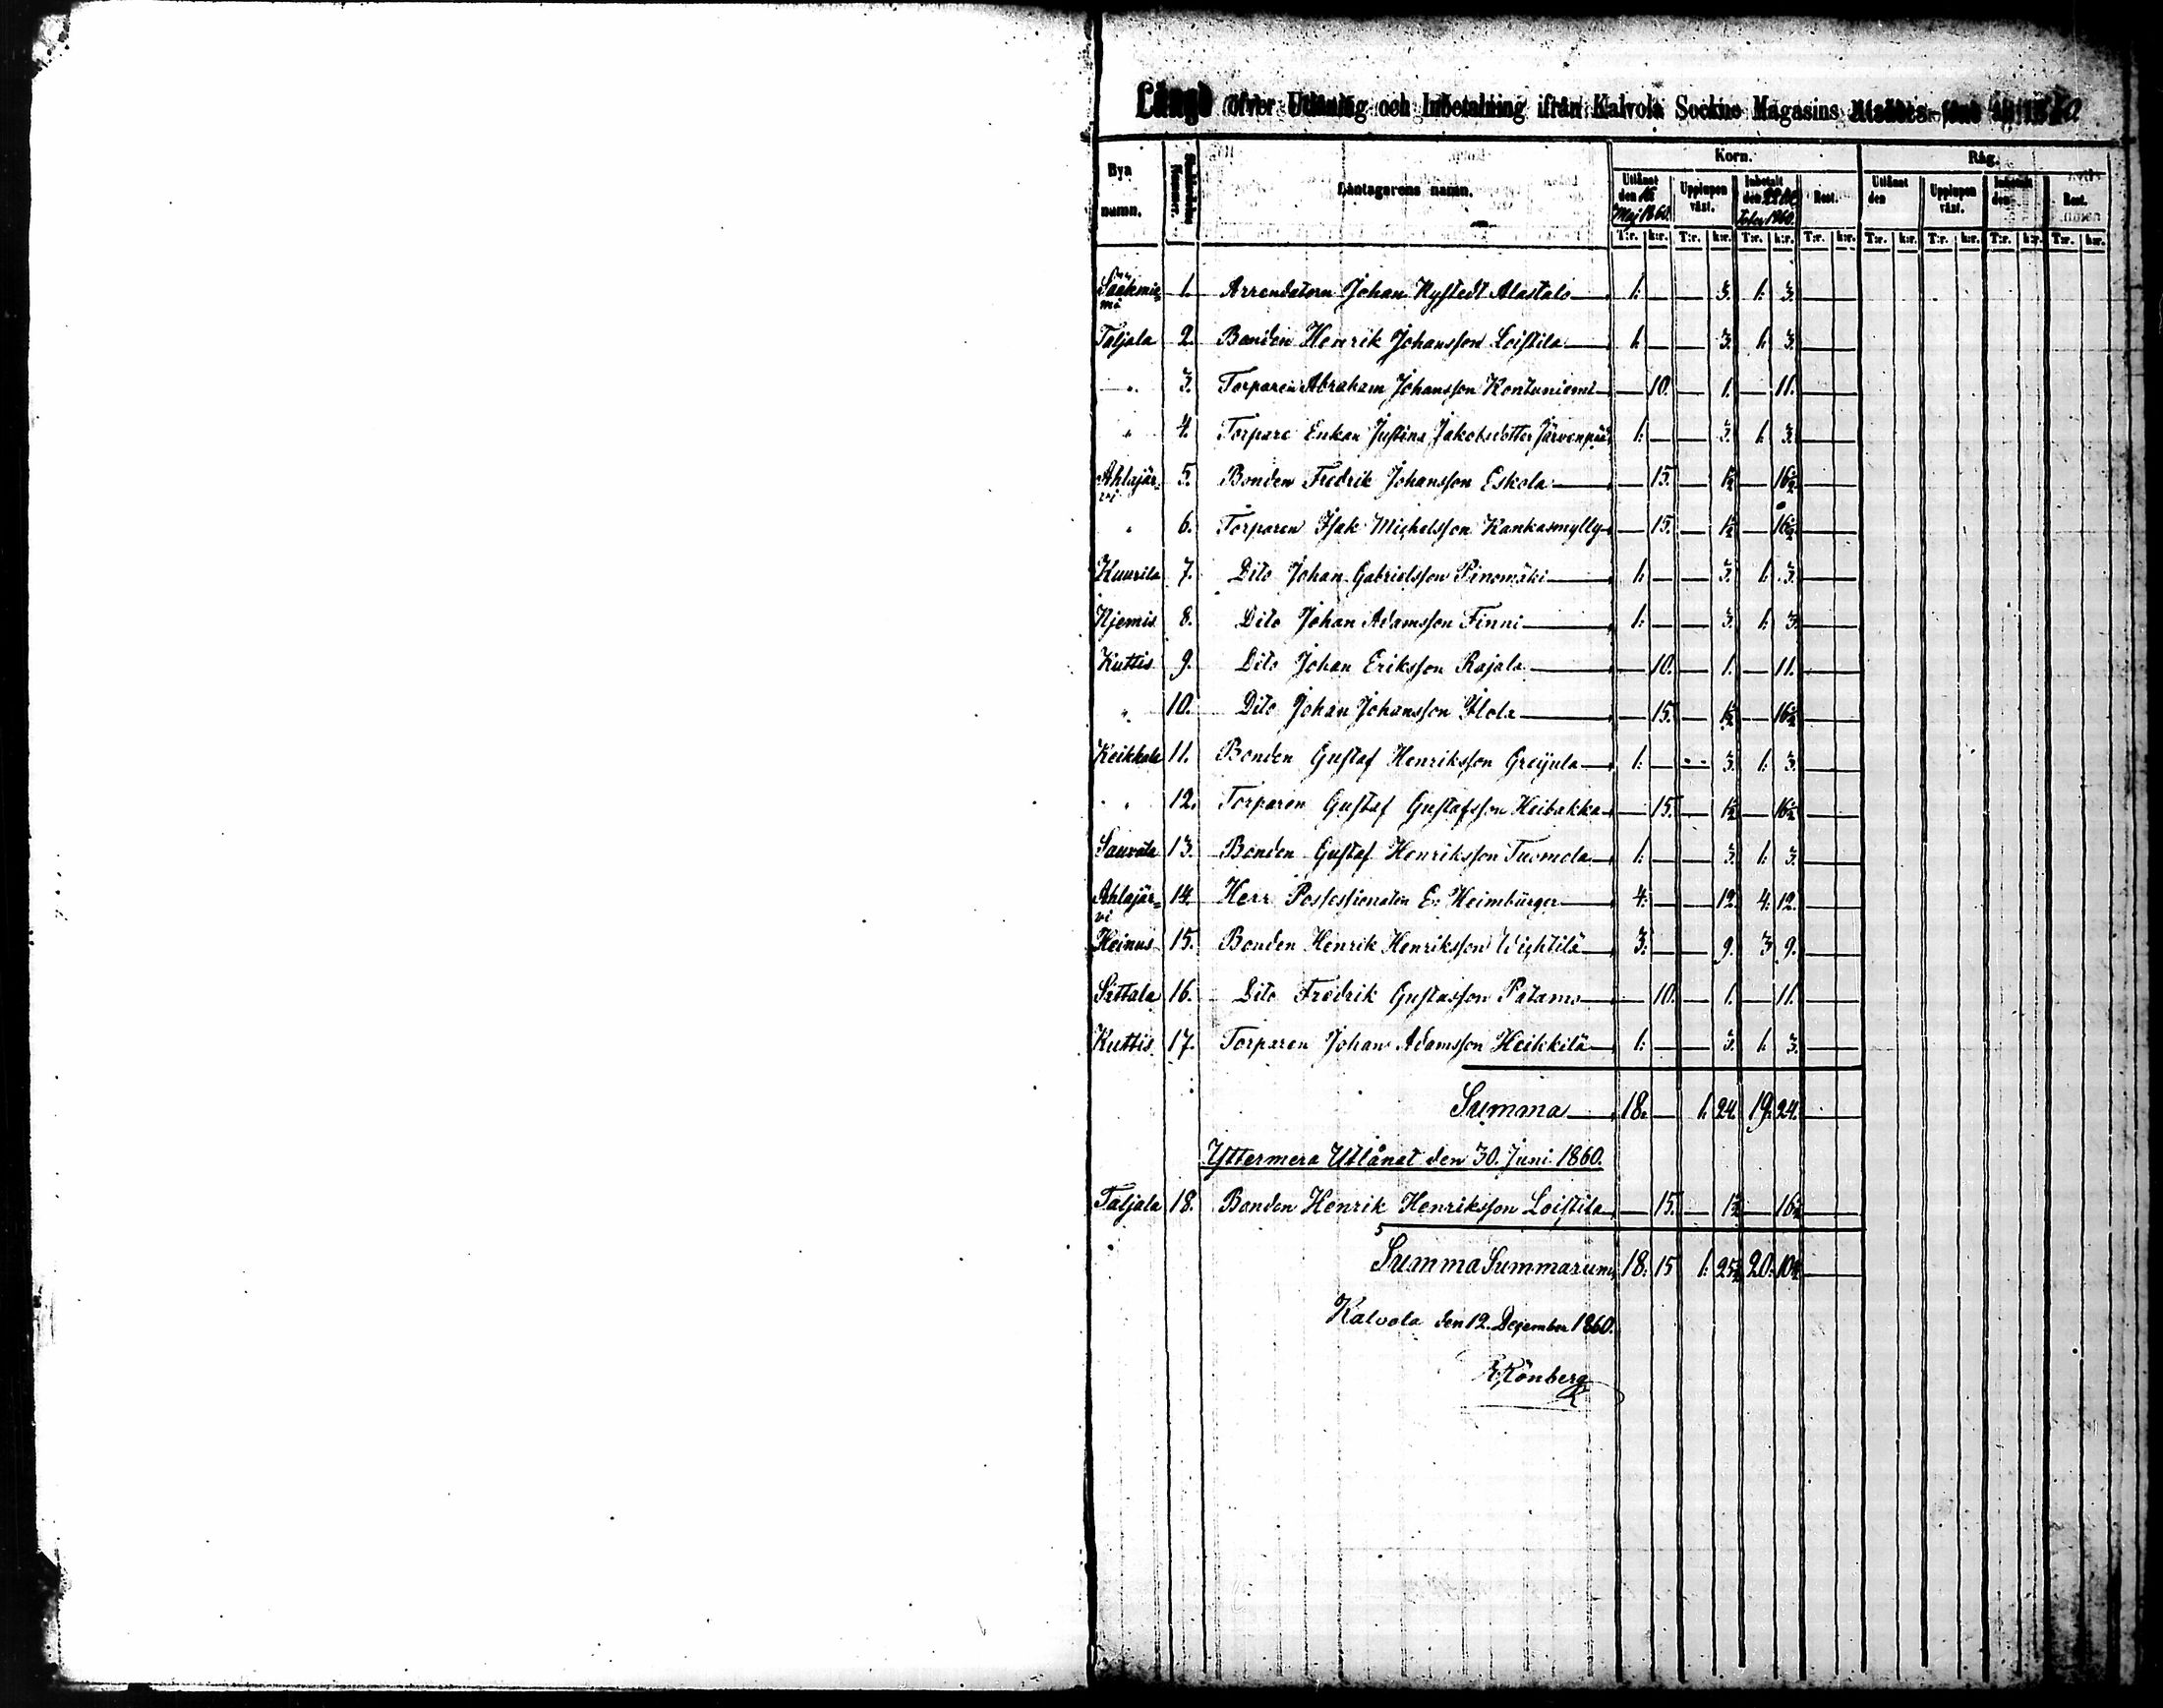 Längd öfver Utlåning och Inbetalning ifrån Kalvola Sockne Magasins
Korn. Råg.
Bya namn. Låntagarens namn. Utlånt den 16 Maj 1860. Upplupen växt. Inbetalt den 22 October 1860. Rest. Utlånt den Upplupen växt. Inbetalt den Rest.
T:r. k:r. T:r. k:r. T:r. k:r. T:r. k:r. T:r. k:r. T:r. k:r. T:r. k:r. T:r. k:r.
Sääksnie- 1. Arrendatorn Johan Nystedt Alastalo 1: — — 3. 1: 3. —
mä
Taljala 2. Bonden Henrik Johansson Loistila 1. — — 3. 1. 3. —
" 3. Torparen Abraham Johansson Kontuniemi — 10. — 1. — 11. —
" 4. Torpare Enkan Justina Jakobsdotter Järvenpää 1: — — 3. 1. 3. —
Ahlajär- 5. Bonden Fredrik Johansson Eskola — 15. — 1½ — 16½ —
vi
" 6. Torparen Isak Michelsson Kankasmylly — 15. — 1½ — 16½ —
Kuurila 7. Dito Johan Gabrielsson Pinomäki 1. — — 3. 1. 3. —
Njemis 8. Dito Johan Adamsson Finni 1: — — 3. 1. 3. —
Kuttis 9. Dito Johan Eriksson Rajala — 10. — 1. — 11. —
" 10. Dito Johan Johansson Ilola — 15. — 1½ — 16½ —
Keikkala 11. Bonden Gustaf Henriksson Greijula 1. — — 3. 1: 3. —
" 12. Torparen Gustaf Gustafsson Heibakka — 15. — 1½ — 16½ —
Sauvala 13. Bonden Gustaf Henriksson Tuomola 1. — — 3. 1: 3. —
Ahlajär- 14 Herr Possessionaten E. Heimbürger 4: — — 12. 4: 12. —
vi
Heinus 15. Bonden Henrik Henriksson Wichtilä 3: — — 9. 3 9. —
Sittala 16. Dito Fredrik Gustasson Patamo — 10. — 1. — 11. —
Kuttis 17. Torparen Johan Adamsson Heikkilä 1: — — 3. 1. 3. —
Summa 18. — 1. 24. 19. 24. —
Yttermera Utlånat den 30. Juni 1860.
Taljala 18. Bonden Henrik Henriksson Loistila — 15. — 1½ — 16½ —
Summa Summarum 18. 15 1: 25½ 20. 10½ —
Kalvola den 12. December 1860.
Rönberg